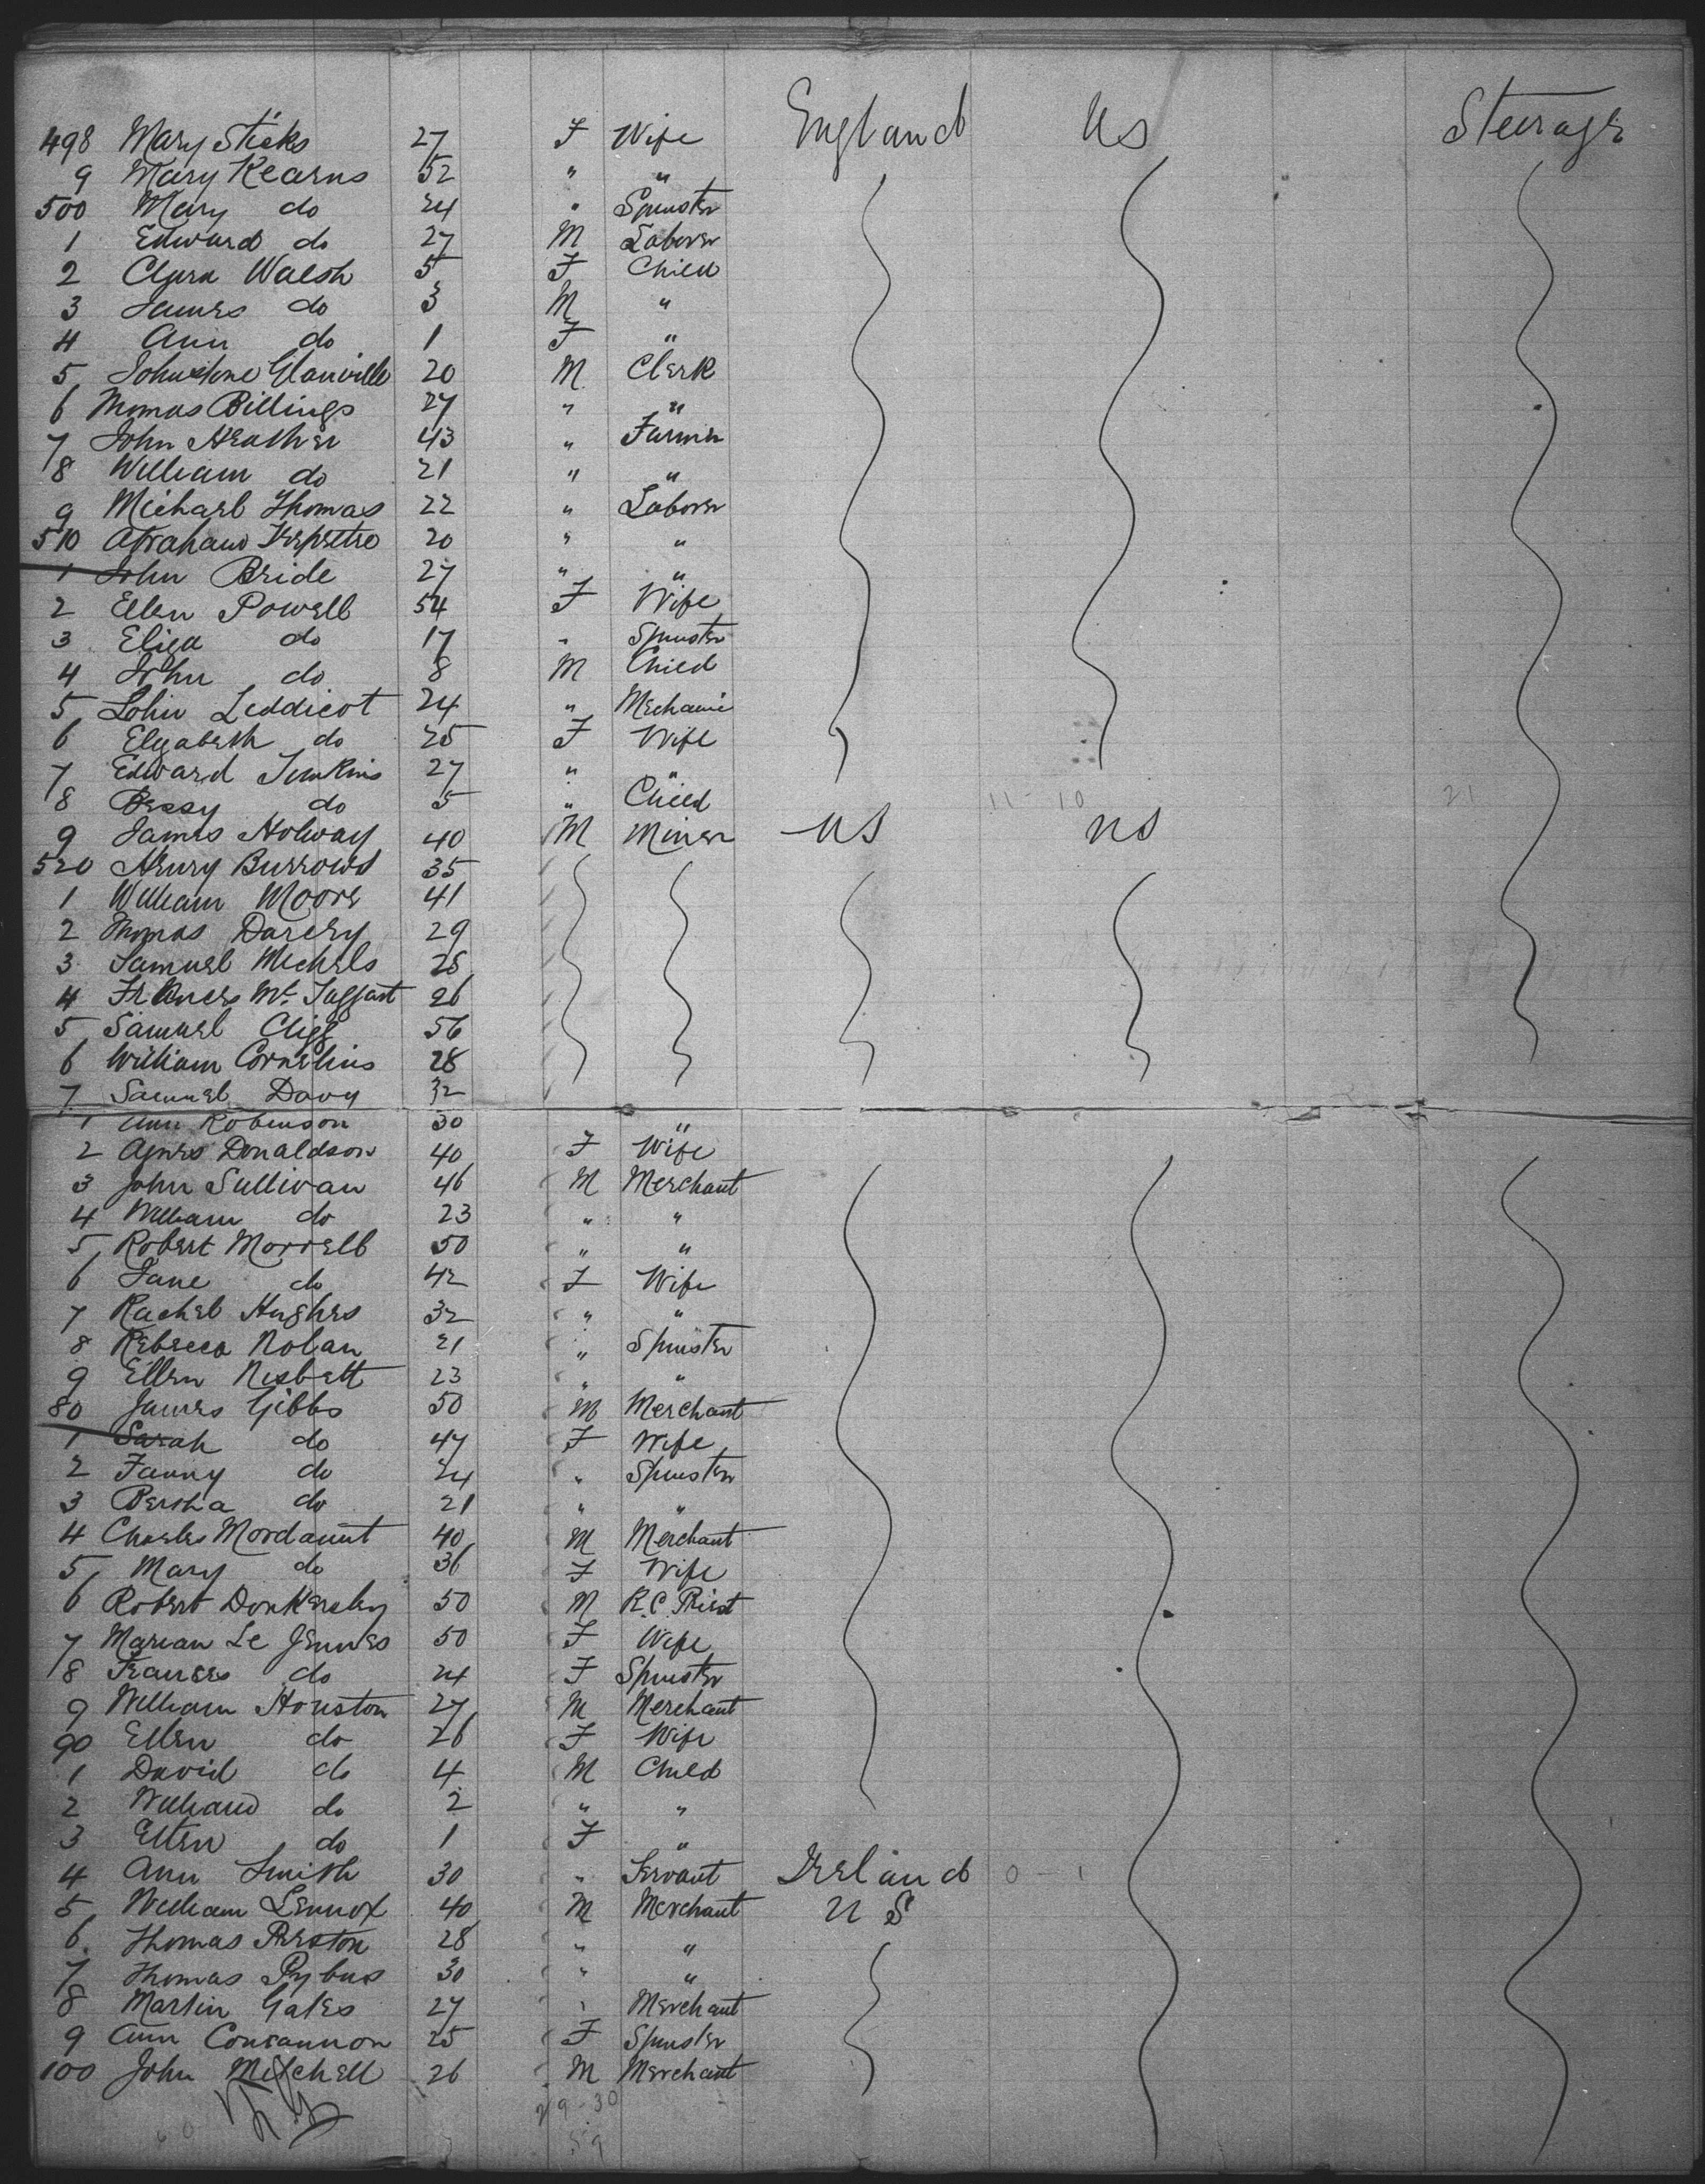 498 Mary Sticks 27 F Wife England Us Steerage
9 Mary Kearns 52 " "
500 Mary do 24 " Spinster
1 Edward do 27 M Laborer
2 Clara Walsh 5 F Child
3 James do 3 M "
4 Ann do 1 F "
5 Johnstone Glanville 20 M Clerk
6 Thomas Billings 27 " "
7 John Heather 43 " Farmer
8 William do 21 " "
9 Michael Thomas 22 " Laborer
510 Abraham 20 " "
1 John Bride 27 " "
2 Ellen Powell 54 F Wife
3 Eliza do 17 " Spinster
4 John do 8 M Child
5 John Leddicot 24 " Mechanic
6 Elizabeth do 25 F Wife
7 Edward Jenkins 27 " "
8 Bessy do 5 " Child 11-10 21
9 James Holway 40 M Miner US US
520 Henry Burrows 35
1 William Moore 41
2 Thomas Darcey 29
3 Samuel Michels 25
4 Frances Mc Taggart 26
5 Samuel Cligg 56
6 William Cornelius 28
7 Samuel Davy 32
1 Ann Robinson 30 "
2 Agnes Donaldson 40 F Wife
3 John Sullivan 46 M Merchant
4 William do 23 " "
5 Robert Morrell 50 " "
6 Jane do 42 F Wife
7 Rachel Hughes 32 " "
8 Rebecca Nolan 21 " Spinster
9 Ellen Nesbett 23 " "
80 James Gibbs 50 M Merchant
1 Sarah do 47 F Wife
2 Fanny do 24 " Spinster
3 Bertha do 21 " "
4 Charles Mordaunt 40 M Merchant
5 Mary do 36 F Wife
6 Robert Donkersley 50 M R.C. Priest
7 Marian Le Jennes 50 F Wife
8 Frances do 24 F Spinster
9 William Houston 27 M Merchant
90 Ellen do 26 F Wife
1 David do 4 M Child
2 William do 2 " "
3 Ellen do 1 F "
4 Ann Smith 30 " Servant Ireland 0-1
5 William Lennox 40 M Merchant U S
6 Thomas Preston 28 " "
7 Thomas Pybus 30 " "
8 Martin Gates 27 " Merchant
9 Ann Concannon 25 F Spinster
100 John Mitchell 26 M Merchant
29-30
60 59